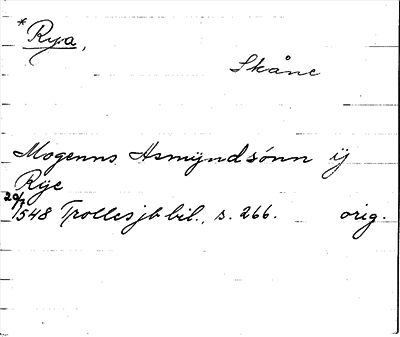 * Rya,
Skåne
Mogenns Asmÿndsónn ÿ
Rÿe
20/7 1548 Trolles jb bil., s. 266. orig.